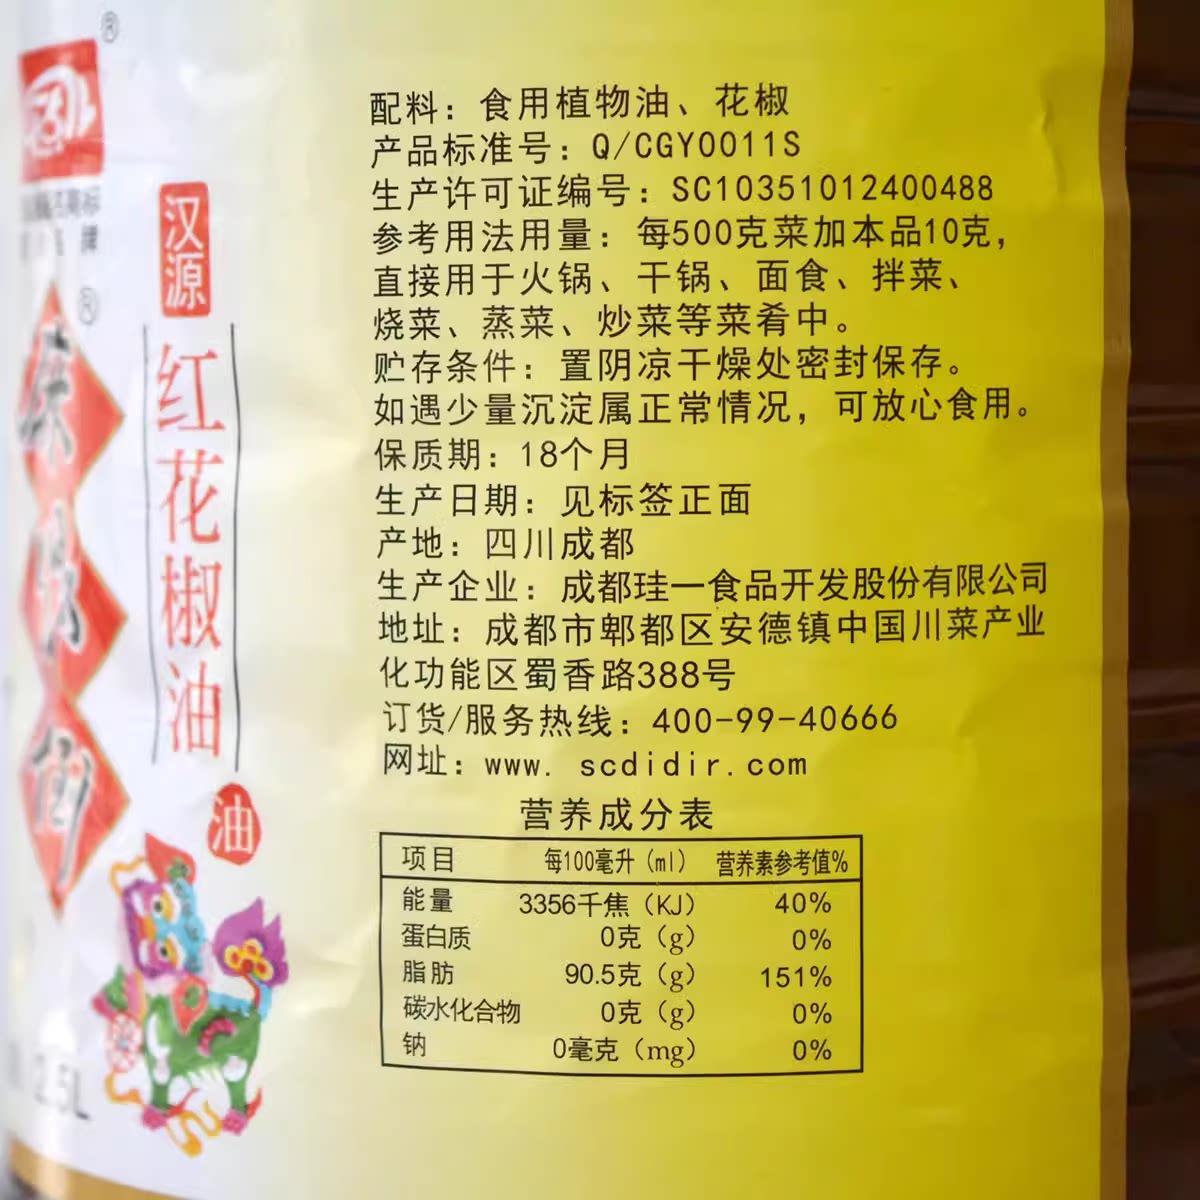 ®
®
汉源
红花椒油
油
2.5L
配料：食用植物油、花椒
产品标准号：Q/CGY0011S
生产许可证编号：SC10351012400488
参考用法用量：每500克菜加本品10克，
直接用于火锅、干锅、面食、拌菜、
烧菜、蒸菜、炒菜等菜肴中。
贮存条件：置阴凉干燥处密封保存。
如遇少量沉淀属正常情况，可放心食用。
保质期：18个月
生产日期：见标签正面
产地：四川成都
生产企业：成都珪一食品开发股份有限公司
地址：成都市郫都区安德镇中国川菜产业
化功能区蜀香路388号
订货/服务热线：400-99-40666
网址：www. scdidir.com
营养成分表
项目 每100毫升（ml） 营养素参考值%
能量 3356千焦（KJ） 40%
蛋白质 0克（g） 0%
脂肪 90.5克（g） 151%
碳水化合物 0克（g） 0%
钠 0毫克（mg） 0%